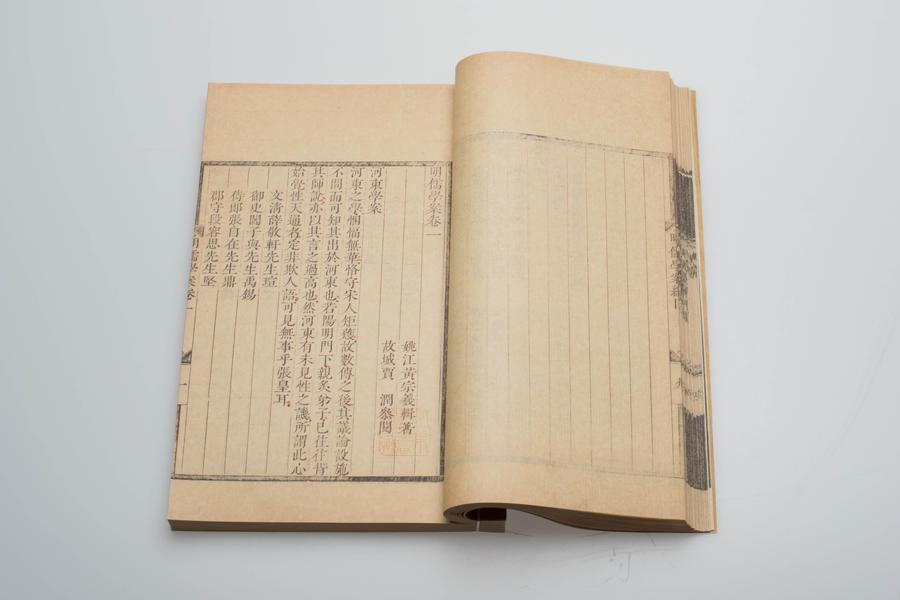 明儒學案卷一
姚江黃宗羲輯著
故城賈 潤參閱
河東學案
河東之學悃愊無華恪守宋人矩矱故數傳之後其議論設施
不問而可知其出於河東也若陽明門下親炙弟子已往往背
其師說亦以其言之過高也然河東有未見性之譏所謂此心
始覺性天通者定非欺人語可見無事乎張皇耳
文清薛敬軒先生瑄
御史閻子與先生禹錫
侍郎張自在先生鼎
郡守段容思先生堅
明儒學案卷一
一